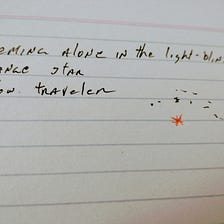 eming alone in the light-blin
ange star
ow traveler